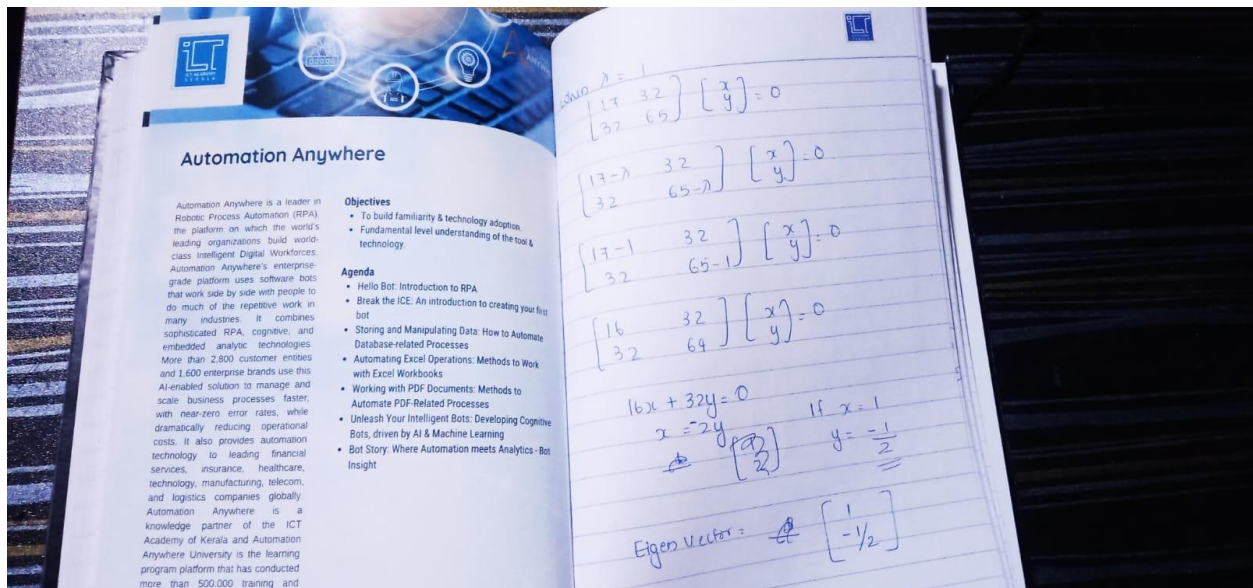 iLT
ICT ACADEMY
KERALA
Automation Anywhere
Automation Anywhere is a leader in
Robotic Process Automation (RPA),
the platform on which the world's
leading organizations build world-
class Intelligent Digital Workforces.
Automation Anywhere's enterprise-
grade platform uses software bots
that work side by side with people to
do much of the repetitive work in
many industries. It combines
sophisticated RPA, cognitive, and
embedded analytic technologies.
More than 2,800 customer entities
and 1,600 enterprise brands use this
AI-enabled solution to manage and
scale business processes faster,
with near-zero error rates, while
dramatically reducing operational
costs. It also provides automation
technology to leading financial
services, insurance, healthcare,
technology, manufacturing, telecom,
and logistics companies globally.
Automation Anywhere is a
knowledge partner of the ICT
Academy of Kerala and Automation
Anywhere University is the learning
program platform that has conducted
more than 500,000 training and
Objectives
• To build familiarity & technology adoption.
• Fundamental level understanding of the tool &
technology.
Agenda
• Hello Bot: Introduction to RPA
• Break the ICE: An introduction to creating your first
bot
• Storing and Manipulating Data: How to Automate
Database-related Processes
• Automating Excel Operations: Methods to Work
with Excel Workbooks
• Working with PDF Documents: Methods to
Automate PDF-Related Processes
• Unleash Your Intelligent Bots: Developing Cognitive
Bots, driven by AI & Machine Learning
• Bot Story: Where Automation meets Analytics - Bot
Insight
iLT
when λ = 1
[17 32] [x] = 0
[32 65] [y]
[17-λ 32] [x] = 0
[32 65-λ] [y]
[17-1 32] [x] = 0
[32 65-1] [y]
[16 32] [x] = 0
[32 64] [y]
16x + 32y = 0
x = -2y
If x = 1
y = -1/2
Eigen Vector = [1]
[-1/2]